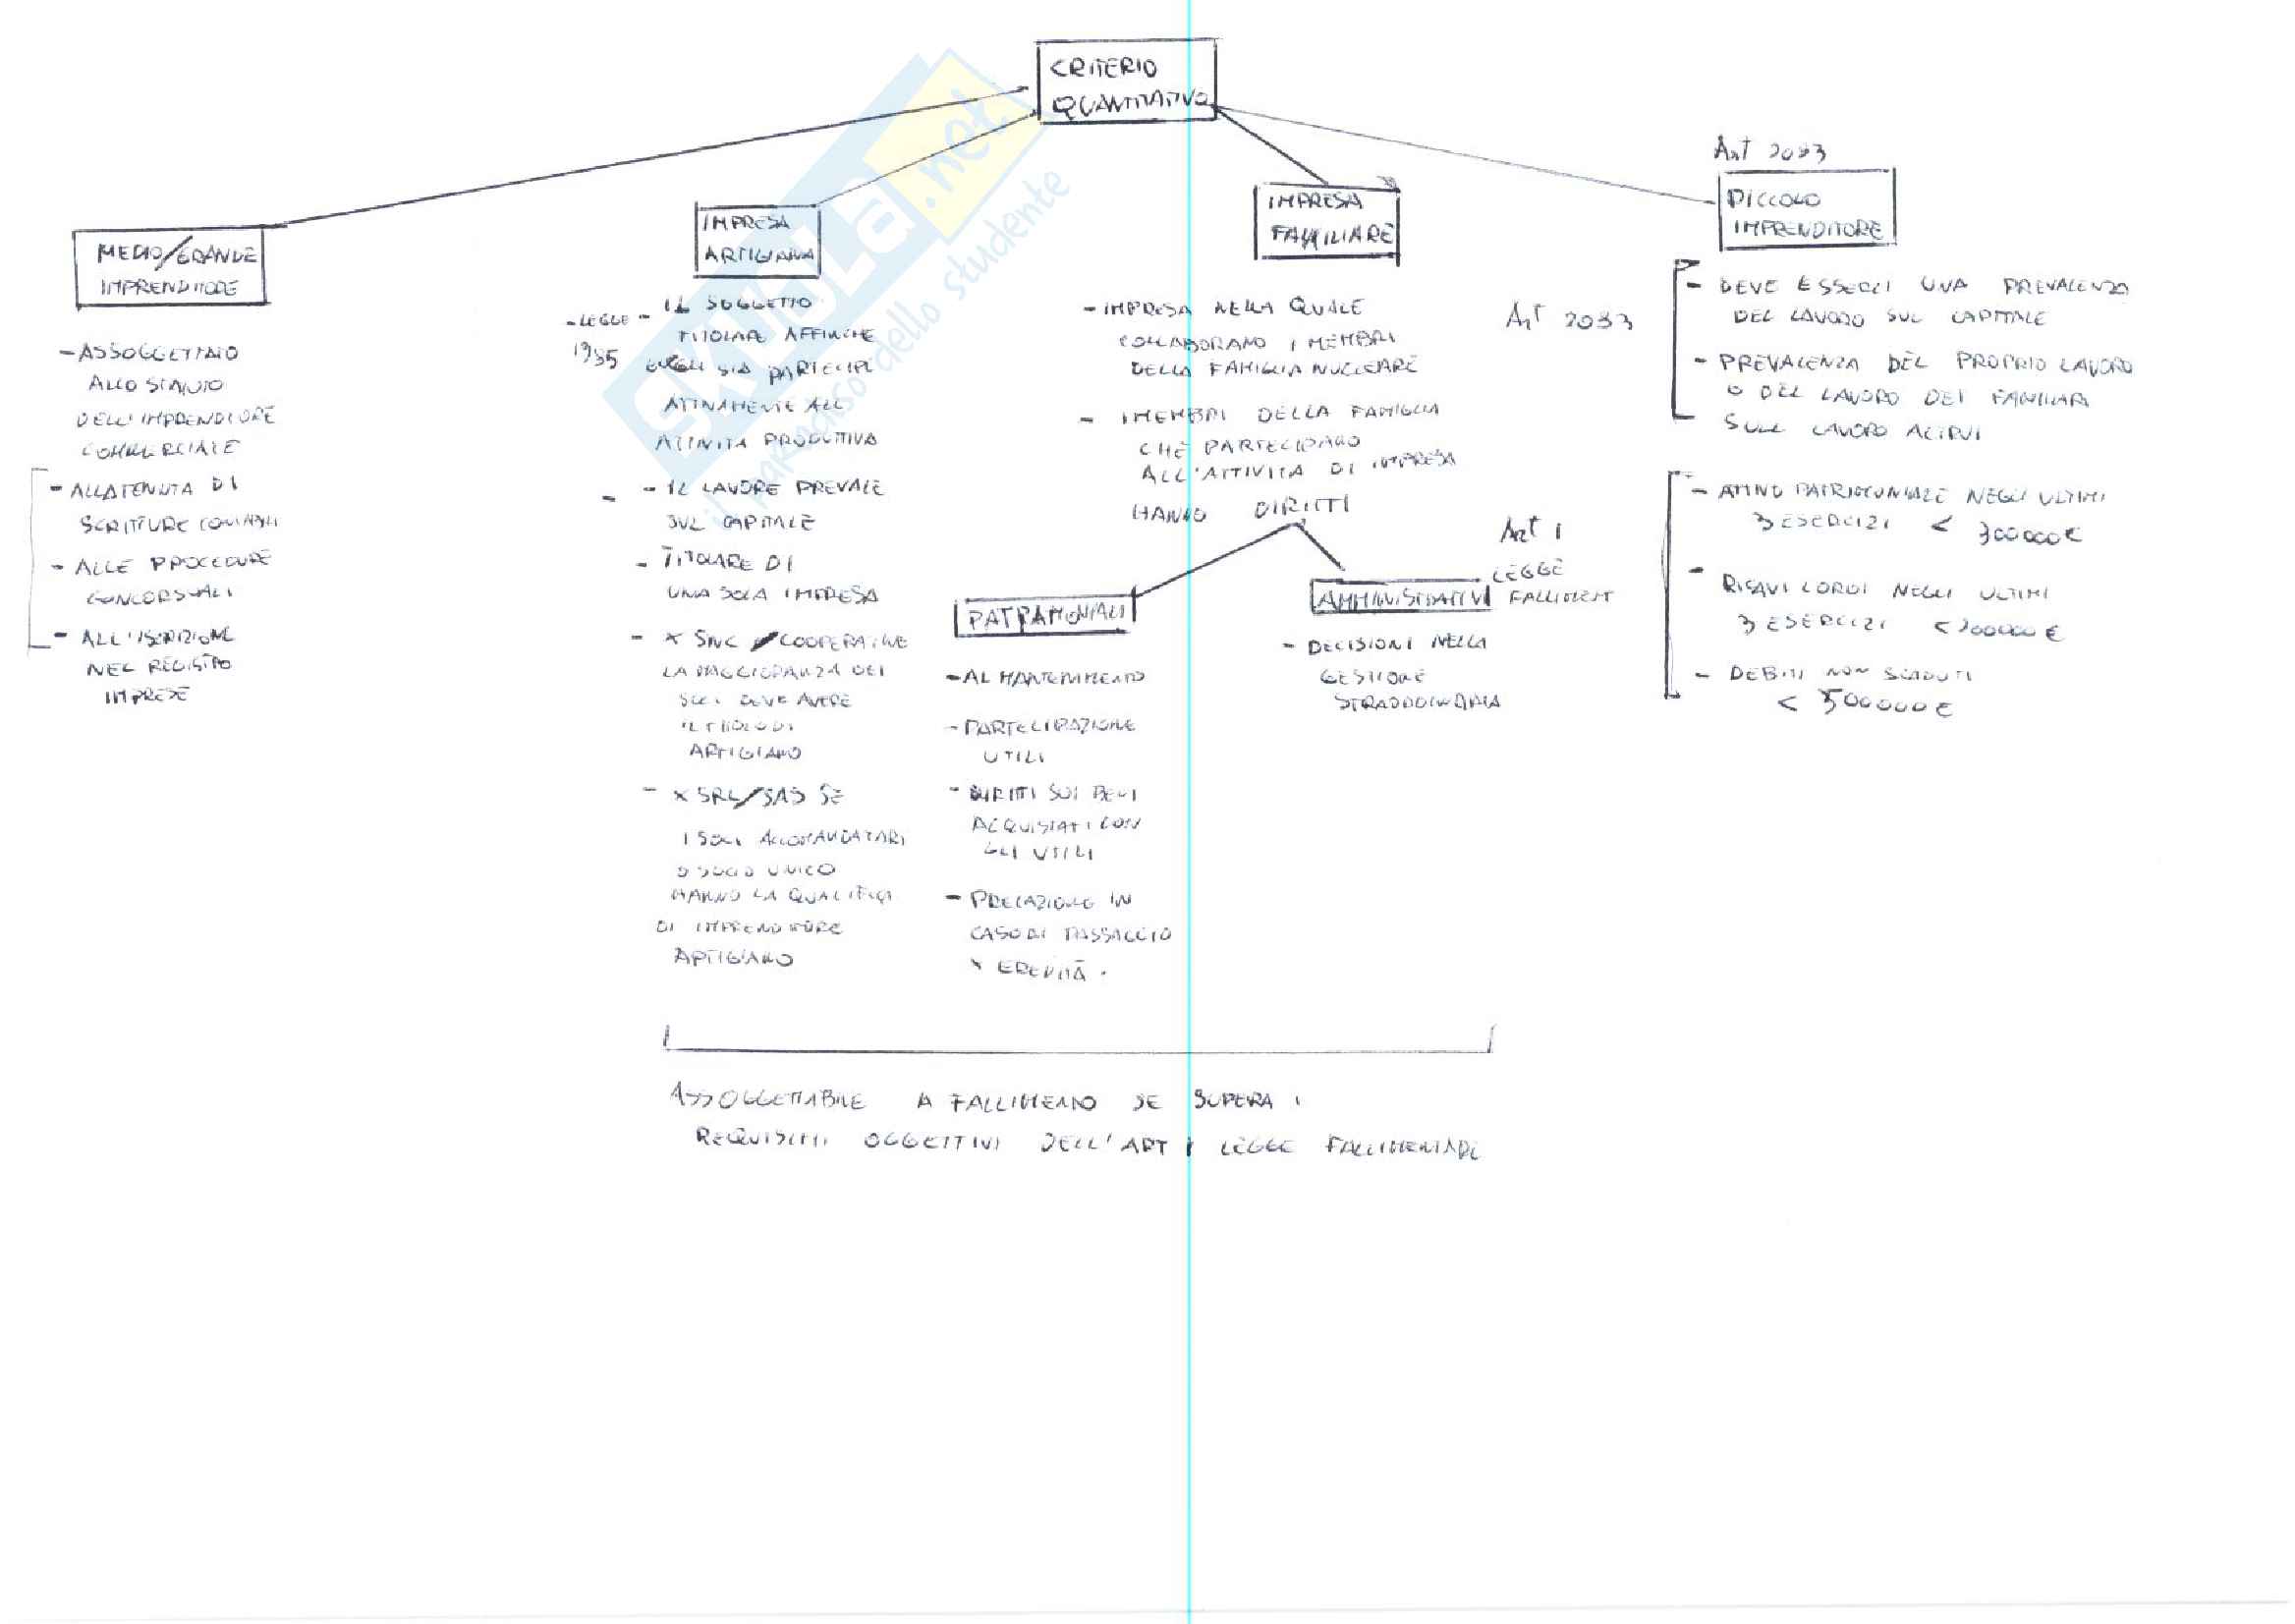 CRITERIO
QUANTITATIVO
MEDIO/GRANDE
IMPRENDITORE
- ASSOGGETTATO
ALLO STATUTO
DELL'IMPRENDITORE
COMMERCIALE
- ALLA TENUTA DI
SCRITTURE CONTABILI
- ALLE PROCEDURE
CONCORSUALI
- ALL'ISCRIZIONE
NEL REGISTRO
IMPRESE
IMPRESA
ARTIGIANA
- LEGGE
1985
- IL SOGGETTO
TITOLARE AFFINCHE
EGLI SIA PARTECIPE
ATTIVAMENTE ALL
ATTIVITA PRODUTTIVA
- IL LAVORE PREVALE
SUL CAPITALE
- TITOLARE DI
UNA SOLA IMPRESA
- X SNC / COOPERATIVE
LA MAGGIORANZA DEI
SOCI DEVE AVERE
IL TITOLO DI
ARTIGIANO
- X SRL/SAS SE
I SOCI ACCOMANDATARI
O SOCIO UNICO
HANNO LA QUALIFICA
DI IMPRENDITORE
ARTIGIANO
IMPRESA
FAMILIARE
- IMPRESA NELLA QUALE
COLLABORANO I MEMBRI
DELLA FAMIGLIA NUCLEARE
- I MEMBRI DELLA FAMIGLIA
CHE PARTECIPANO
ALL'ATTIVITA DI IMPRESA
HANNO DIRITTI
PATRIMONIALI
- AL MANTENIMENTO
- PARTECIPAZIONE
UTILI
- DIRITTI SUI BENI
ACQUISTATI CON
GLI UTILI
- PRELAZIONE IN
CASO DI PASSAGGIO
X EREDITÀ.
AMMINISTRATIVI
- DECISIONI NELLA
GESTIONE
STRAORDINARIA
Art 2083
PICCOLO
IMPRENDITORE
Art 2083
- DEVE ESSERCI UNA PREVALENZA
DEL LAVORO SUL CAPITALE
- PREVALENZA DEL PROPRIO LAVORO
O DEL LAVORO DEI FAMILIARI
SULL LAVORO ALTRUI
Art 1
LEGGE
FALLIMENT
- ATTIVO PATRIMONIALE NEGLI ULTIMI
3 ESERCIZI < 300000€
- RICAVI LORDI NEGLI ULTIMI
3 ESERCIZI < 200000€
- DEBITI NON SCADUTI
< 500000€
ASSOGGETTABILE A FALLIMENTO SE SUPERA I
REQUISITI OGGETTIVI DELL'ART 1 LEGGE FALLIMENTARE
SKUOLA.net
il paradiso dello studente